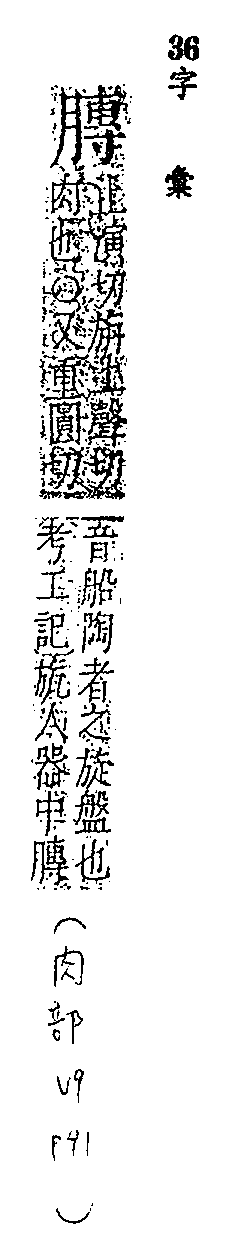 36
字彙
膞
止演切旃上聲切
肉也○又重圓切
音船陶者之旋盤也
考工記旊人器中膞
(肉部 V9 P41)